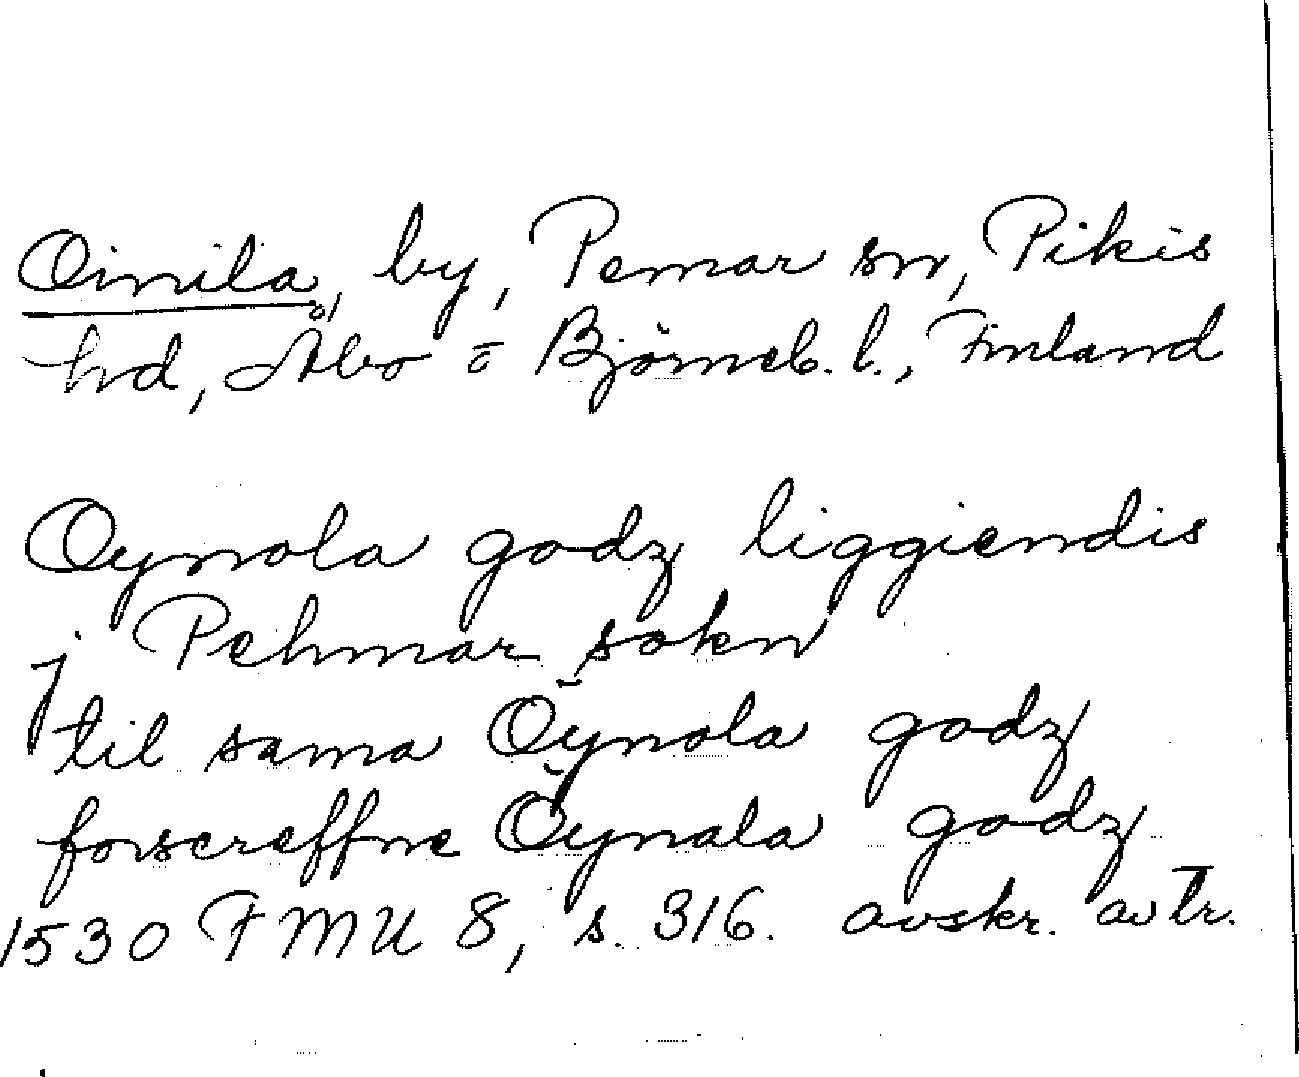 Oinila, by, Pemar sn, Pikis
hd, Åbo o Björneb. l., Finland
Oynola godz liggiendis
j Pehmar sokn
til sama Öynola godz
forscreffne Öynala godz
1530 FMU 8, s. 316. avskr. av tr.